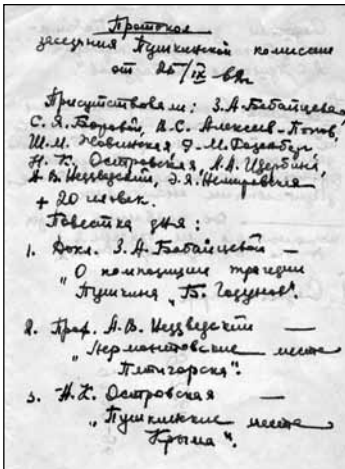 Протокол
заседания Пушкинской комиссии
от 25/IX 62г.
Присутствовали: З.А. Бабайцева,
С.Я. Боровой, В.С. Алексеев-Попов,
Ш.М.
Н.К. Островская, А.А. Щербина,
А.В. Недзведский, Э.Я. Немировская
+ 20 человек.
Повестка дня:
1. Докл. З.А. Бабайцевой —
"О композиции трагедии
Пушкина "Б. Годунов".
2. Проф. А.В. Недзведский —
"Лермонтовские места
Пятигорска".
3. Н.К. Островская —
"Пушкинские места
Крыма".